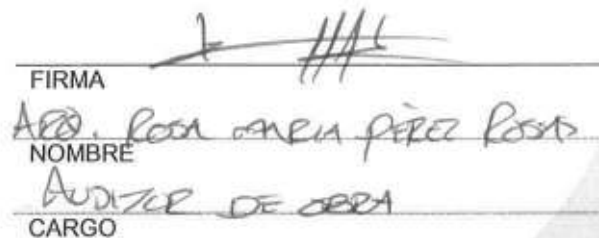 FIRMA
ARQ. ROSA MARIA PÉREZ ROSAS
NOMBRE
AUDITOR DE OBRA
CARGO